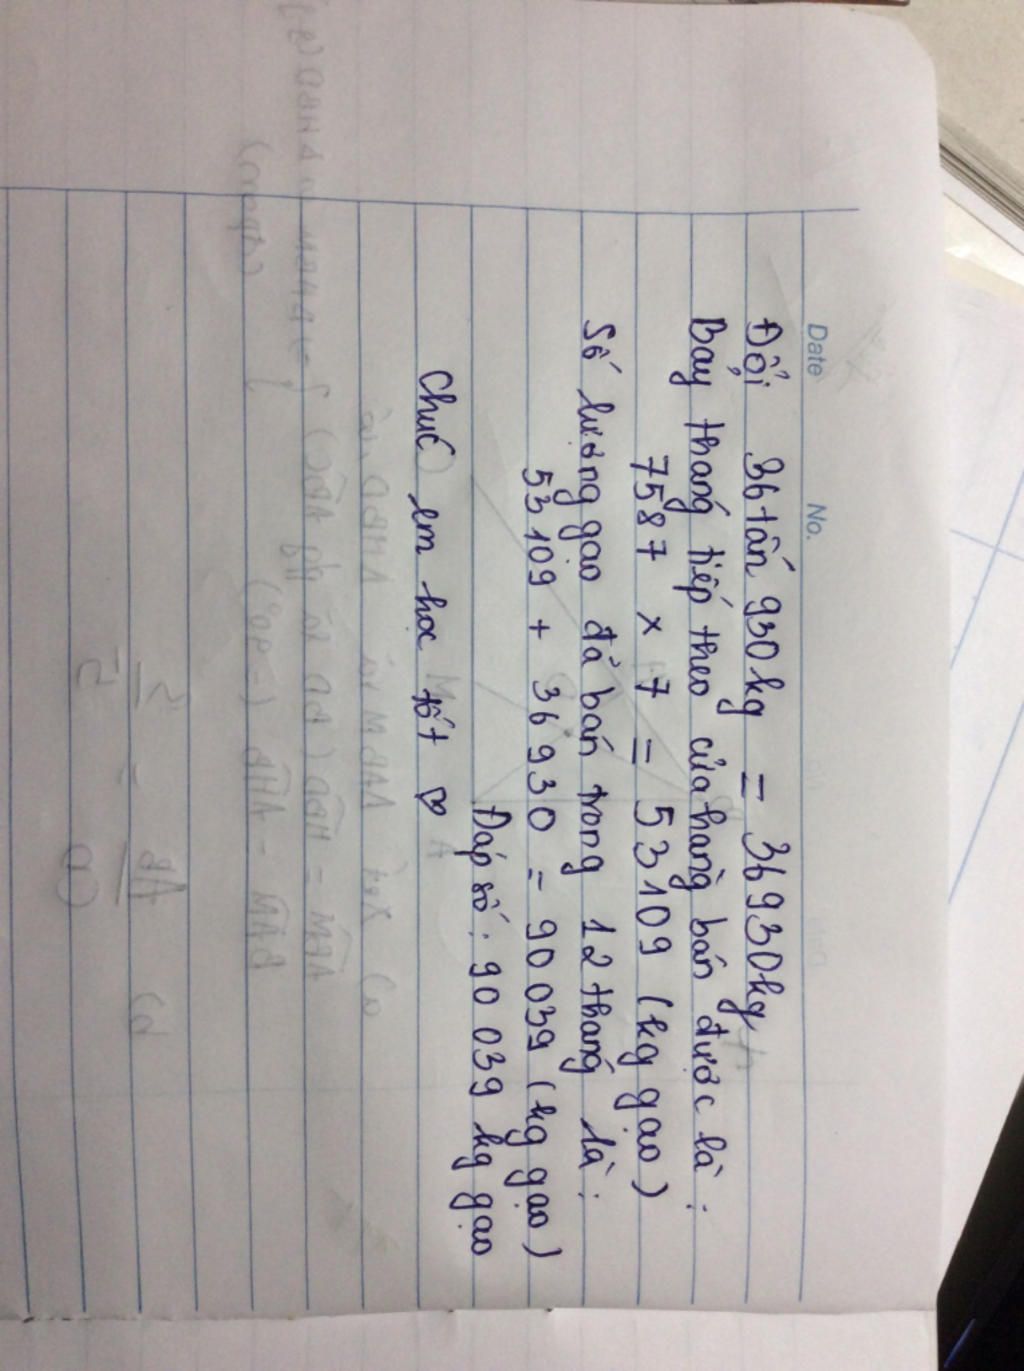 Date No.
Đổi 36 tấn 930kg = 36930kg
Bảy tháng tiếp theo cửa hàng bán được là :
7587 x 7 = 53109 (kg gạo)
Số lượng gạo đã bán trong 12 tháng là :
53109 + 36930 = 90039 (kg gạo)
Đáp số : 90 039 kg gạo
Chúc em học tốt ♡